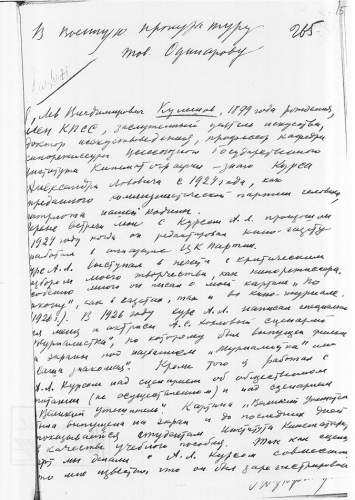 В военную прокуратуру
тов. Одинарову
265
15
Я, Лев Владимирович Кулешов, 1899 года рождения,
член КПСС, заслуженный деятель искусства,
доктор искусствоведения, профессор кафедры
кинорежиссуры Всесоюзного Государственного
Института Кинематографии – знаю Курса
Александра Львовича с 1924 года, как
преданного коммунистической партии человека,
патриота нашей Родины.
встреча моя с Курсом А.Л. произошла
1924 году когда он редактировал кино-газету
работал в аппарате ЦК Партии.
А.Л. выступал в печати с критическим
моего творчества, как кинорежиссера.
много он писал о моей картине „По
закону", как в газетах, так и во кино-журнале.
1926 г.). В 1926 году Курс А.Л. написал специально
для меня и актрисы А.С. Хохловой сценарий
„Журналистка", по которому был выпущен фильм
на экраны под названием „Журналистка" или
„Ваша знакомая". Кроме того я работал с
А.Л. Курсом над сценарием об общественном
питании (не осуществленном) и над сценарием
„Великий утешитель". Картина „Великий утешитель"
была выпущена на экран и до последних дней
показывается студентам Института Кинематографии
в качестве учебного пособия. Так как сцена-
рий мы делали с А.Л. Курсом совместно
то мне известно, что он был